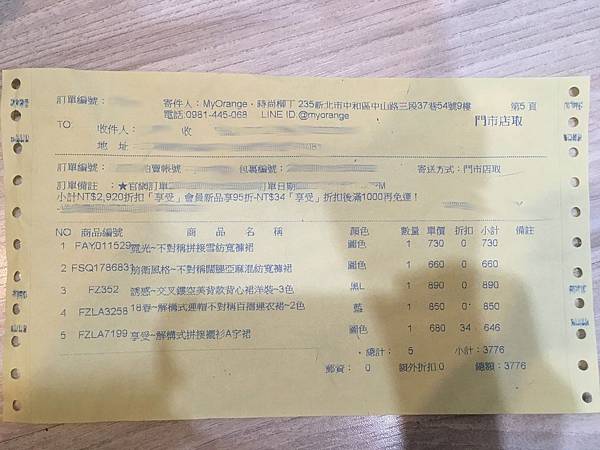 訂單編號：
寄件人：MyOrange・時尚柳丁 235新北市中和區中山路三段37巷54號9樓
第5頁
電話:0981-445-068 LINE ID:@myorange
門市店取
TO: 收件人： 收
地 址
訂單編號： 拍賣帳號 包裹編號： 寄送方式：門市店取
訂單備註 ：★官網訂單 訂單日期
小計NT$2,920折扣「享受」會員新品享95折-NT$34「享受」折扣後滿1000再免運！
NO 商品編號 商 品 名 稱 顏色 數量 單價 折扣 小計 備註
1 FAY011529 霓光~不對稱拼接雪紡寬褲裙 圖色 1 730 0 730
2 FSQ178683 前衛風格~不對稱闊腿亞麻混紡寬褲裙 圖色 1 660 0 660
3 FZ352 誘惑~交叉鏤空美背散背心裙洋裝~3色 黑L 1 890 0 890
4 FZLA3258 18春~解構式連帽不對稱百摺連衣裙~2色 藍 1 850 0 850
5 FZLA7199 享受~解構式拼接襯衫A字裙 圖色 1 680 34 646
總計： 5 小計：3776
郵資： 0 額外折扣:0 總額：3776